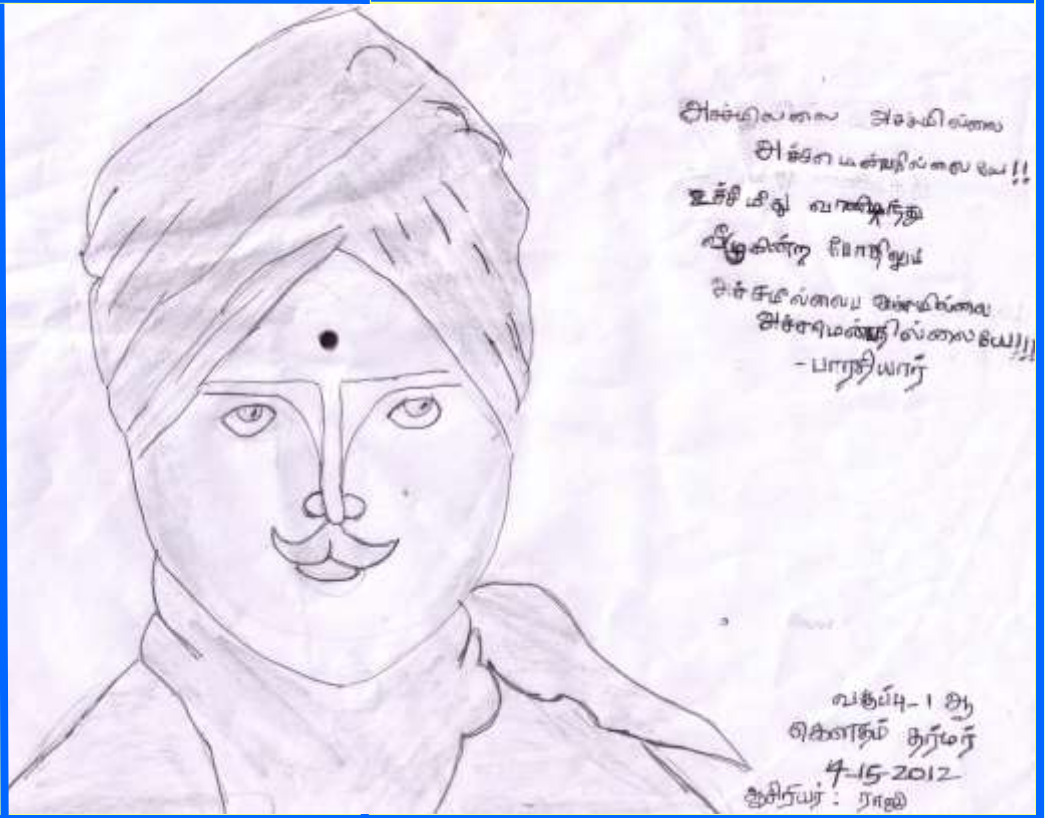 அச்சமில்லை அச்சமில்லை
அச்சமென்பதில்லையே!!
உச்சிமீது வானிடிந்து
வீழுகின்ற போதிலும்
அச்சமில்லை அச்சமில்லை
அச்சமென்பதில்லையே!!!
- பாரதியார்
வகுப்பு - 1 ஆ
கௌதம் தர்மர்
4-15-2012
ஆசிரியர் : ராஜி